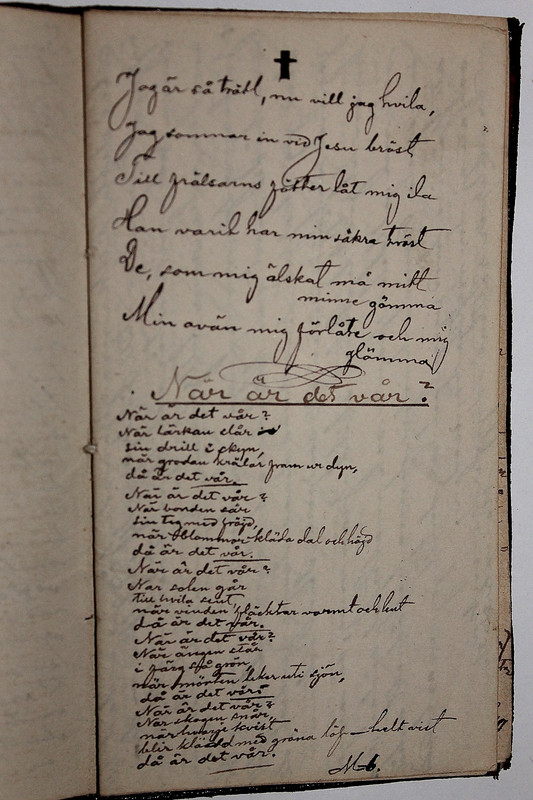 Jag är så trött, nu vill jag hvila,
Jag somnar in vid Jesu bröst
Till frälsarns fötter låt mig ila
Han varit har min säkra tröst
De, som mig älskat må mitt
minne gömma
Min ovän mig förlåte och mig
glömma
När är det vår?
När är det vår?
När lärkan slår
sin drill i skyn,
när grodan krälar fram ur dyn,
då är det vår.
När är det vår?
När bonden sår
sin teg med fröjd,
när blommor kläda dal och höjd
då är det vår.
När är det vår?
När solen går
till hvila sent,
när vinden fläcktar varmt och lent
då är det vår.
När är det vår?
När ängen står
i färg så grön,
när mörten leker uti sjön,
då är det vår.
När är det vår?
När skogen snår,
när hvarge kvist
blir klädd med gröna löf helt vist
då är det vår.